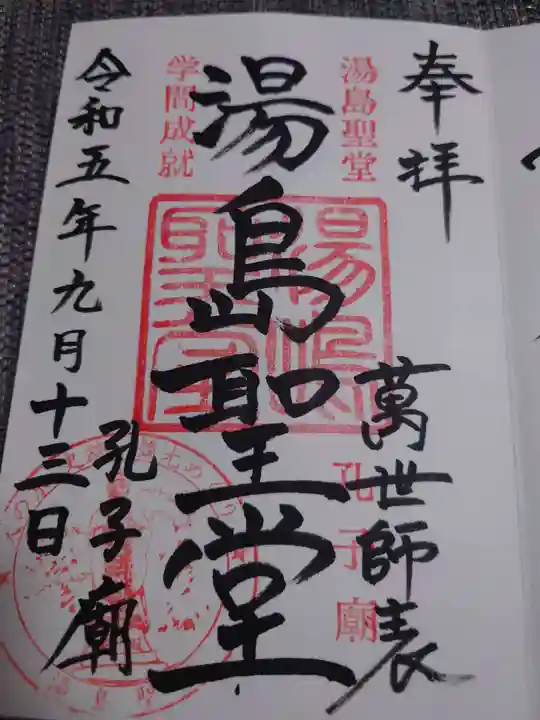 奉拝
萬世師表
湯島聖堂
孔子廟
湯島聖堂
学問成就
孔子廟
令和五年九月十三日